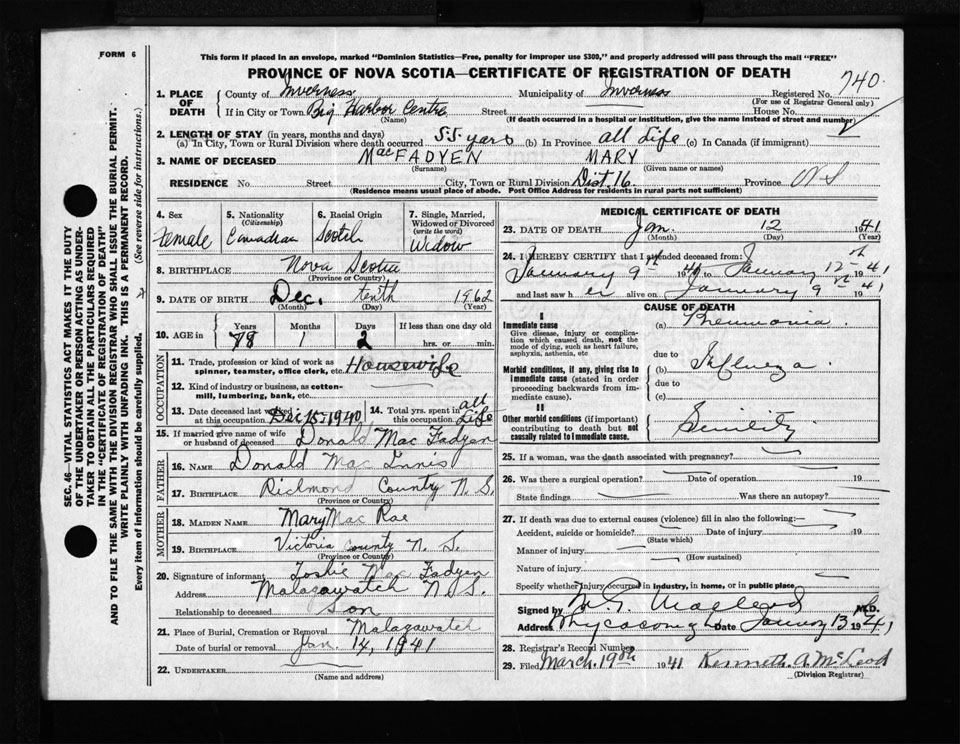 FORM 6
This form if placed in an envelope, marked "Dominion Statistics—Free, penalty for improper use $300," and properly addressed will pass through the mail "FREE"
PROVINCE OF NOVA SCOTIA—CERTIFICATE OF REGISTRATION OF DEATH
740
1. PLACE OF DEATH
County of Inverness Municipality of Inverness Registered No.
(For use of Registrar General only)
If in City or Town Big Harbor Centre Street House No.
(Name) (If death occurred in a hospital or institution, give the name instead of street and number)
2. LENGTH OF STAY (in years, months and days)
(a) In City, Town or Rural Division where death occurred 55 years (b) In Province all Life (c) In Canada (if immigrant)
3. NAME OF DECEASED MacFADYEN MARY
(Surname) (Given name or names)
RESIDENCE No. Street City, Town or Rural Division Dist. 16 Province N S
(Residence means usual place of abode. Post Office Address for residents in rural parts not sufficient)
SEC. 46—VITAL STATISTICS ACT MAKES IT THE DUTY
OF THE UNDERTAKER OR PERSON ACTING AS UNDER-
TAKER TO OBTAIN ALL THE PARTICULARS REQUIRED
IN THE "CERTIFICATE OF REGISTRATION OF DEATH"
AND TO FILE THE SAME WITH THE DIVISION REGISTRAR WHO SHALL ISSUE THE BURIAL PERMIT.
WRITE PLAINLY WITH UNFADING INK. THIS IS A PERMANENT RECORD.
Every item of information should be carefully supplied. (See reverse side for instructions.)
4. Sex Female
5. Nationality (Citizenship) Canadian
6. Racial Origin Scotch
7. Single, Married, Widowed or Divorced (write the word) Widow
8. BIRTHPLACE Nova Scotia
(Province or Country)
9. DATE OF BIRTH Dec. tenth 1962
(Month) (Day) (Year)
10. AGE in Years 78 Months 1 Days 2 If less than one day old
hrs. or min.
OCCUPATION
11. Trade, profession or kind of work as
spinner, teamster, office clerk, etc. Housewife
12. Kind of industry or business, as cotton-
mill, lumbering, bank, etc.
13. Date deceased last worked at this occupation Dec 15-1940
14. Total yrs. spent in this occupation all Life
15. If married give name of wife
or husband of deceased Donald Mac Fadyen
FATHER
16. NAME Donald Mac Innis
17. BIRTHPLACE Richmond County N. S.
(Province or Country)
MOTHER
18. MAIDEN NAME Mary Mac Rae
19. BIRTHPLACE Victoria County N. S.
(Province or Country)
20. Signature of informant Mac Fadyen
Address Malagawatch N. S.
Relationship to deceased Son
21. Place of Burial, Cremation or Removal Malagawatch
Date of burial or removal Jan. 14, 1941
22. UNDERTAKER
(Name and Address)
MEDICAL CERTIFICATE OF DEATH
23. DATE OF DEATH Jan. 12 1941
(Month) (Day) (Year)
24. I HEREBY CERTIFY that I attended deceased from:
January 9th 1941 to January 12th 1941
and last saw her alive on January 9th 1941
CAUSE OF DEATH
I
Immediate cause
Give disease, injury or complication which caused death, not the mode of dying, such as heart failure, asphyxia, asthenia, etc
(a) Pneumonia
due to
Morbid conditions, if any, giving rise to immediate cause (stated in order proceeding backwards from immediate cause).
(b) Influenza
due to
(c)
II
Other morbid conditions (if important) contributing to death but not causally related to immediate cause.
Senility
25. If a woman, was the death associated with pregnancy?
26. Was there a surgical operation? Date of operation 19
State findings Was there an autopsy?
27. If death was due to external causes (violence) fill in also the following:
Accident, suicide or homicide? Date of injury 19
(State which)
Manner of injury
(How sustained)
Nature of injury
Specify whether injury occurred in industry, in home, or in public place
Signed by Macleod M.D.
Address Whycocomagh Date January 13 1941
28. Registrar's Record Number
29. Filed March 19th 1941 Kenneth. A. McLeod
(Division Registrar)